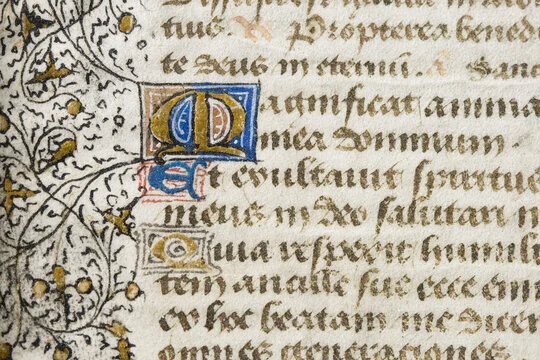 tuus. V Propterea bened
te deus in eternu. a Sanc
Magnificat anima
mea dominum.
Et exultauit spiritus
meus in deo salutari m
Quia respexit humili
tem ancille sue ecce eni
ex hoc beatam me dicen
omnes generationes